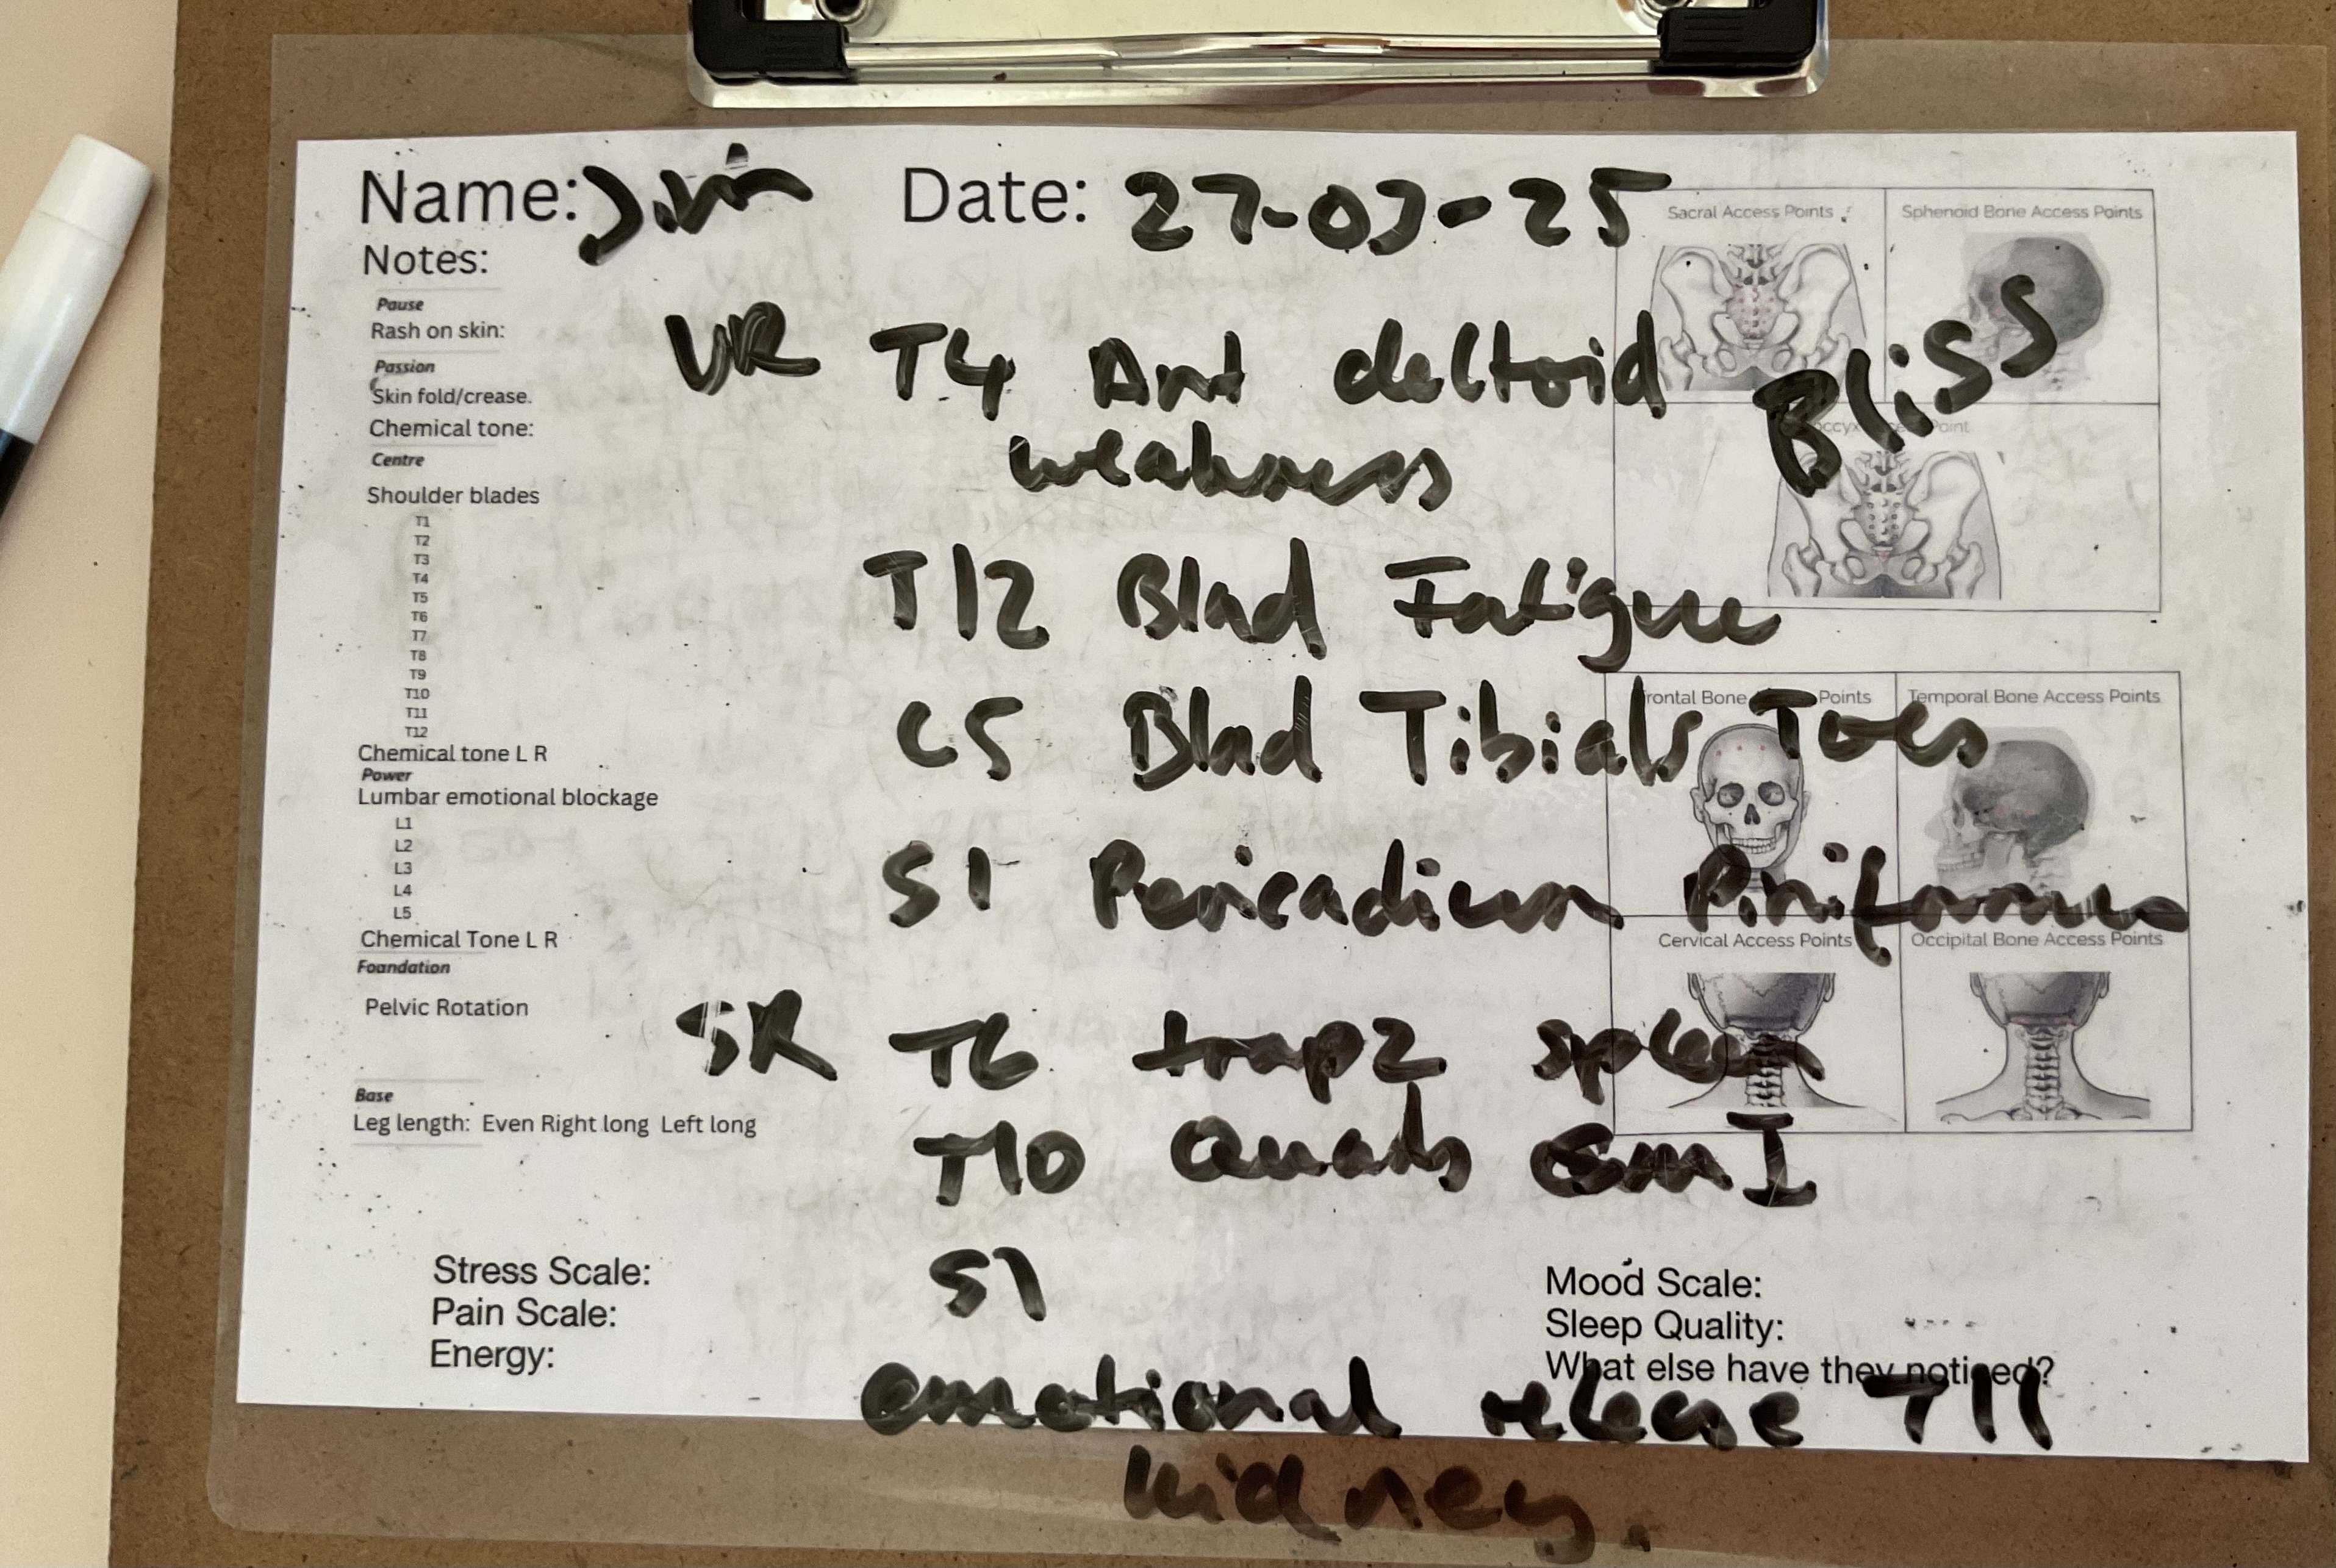 Name: Date: 27-03-25
Notes:
Pause
Rash on skin:
Passion
Skin fold/crease.
Chemical tone:
Centre
Shoulder blades
T1
T2
T3
T4
T5
T6
T7
T8
T9
T10
T11
T12
Chemical tone L R
Power
Lumbar emotional blockage
L1
L2
L3
L4
L5
Chemical Tone L R
Foundation
Pelvic Rotation
Base
Leg length: Even Right long Left long
Stress Scale:
Pain Scale:
Energy:
UR T4 Ant deltoid Bliss
weakness
T12 Blad Fatigue
C5 Blad Tibials Toes
S1 Pericadium Piriformis
SR T6 trap2 spleen
T10 Quads I
S1
emotional release T11
kidney.
Sacral Access Points
Sphenoid Bone Access Points
Point
Frontal Bone Points
Temporal Bone Access Points
Cervical Access Points
Occipital Bone Access Points
Mood Scale:
Sleep Quality:
What else have they noticed?